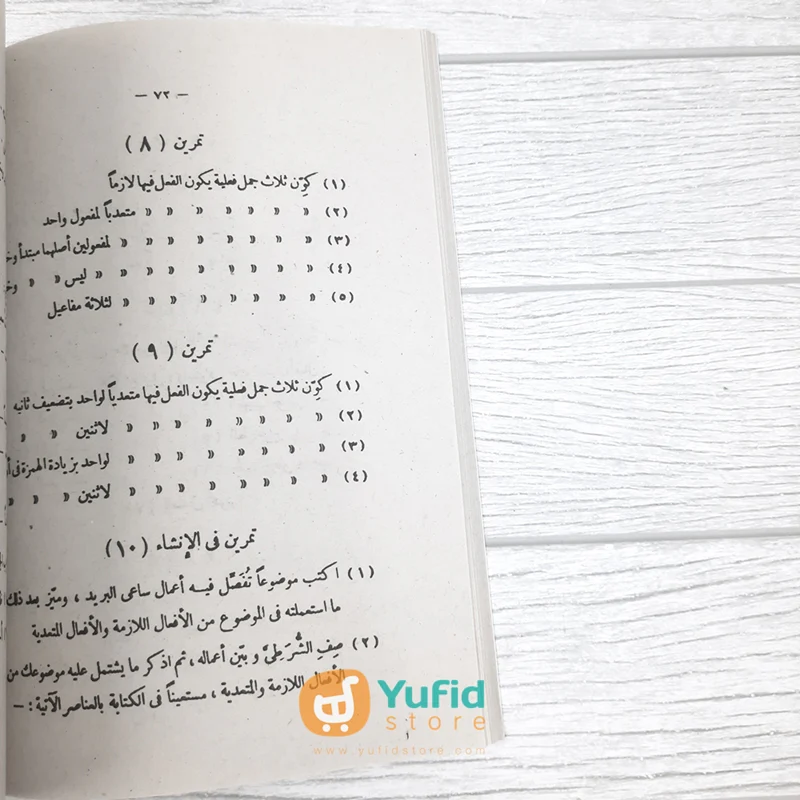 — ٧٢ —
تمرين ( ٨ )
(١) كوِّن ثلاث جمل فعلية يكون الفعل فيها لازماً
(٢) » » » » » » » متعدياً لمفعول واحد
(٣) » » » » » » » » لمفعولين أصلهما مبتدأ
(٤) » » » » » » » » » ليس » »
(٥) » » » » » » » » لثلاثة مفاعيل
تمرين ( ٩ )
(١) كوِّن ثلاث جمل فعلية يكون الفعل فيها متعدياً لواحد بتضعيف ثانيه
(٢) » » » » » » » » لاثنين » »
(٣) » » » » » » » » لواحد بزيادة الهمزة فى
(٤) » » » » » » » » لاثنين » » »
تمرين فى الإنشاء (١٠)
(١) اكتب موضوعاً تُفَصَّل فيه أعمال ساعى البريد ، وميّز بعد ذلك
ما استعملته فى الموضوع من الأفعال اللازمة والأفعال المتعدية
(٢) صِفِ الشُّرَطِىَّ وبيّن أعماله ، ثم اذكر ما يشتمل عليه موضوعك من
الأفعال اللازمة والمتعدية ، مستعيناً فى الكتابة بالعناصر الآتية : —
Yufid
store
www.yufidstore.com